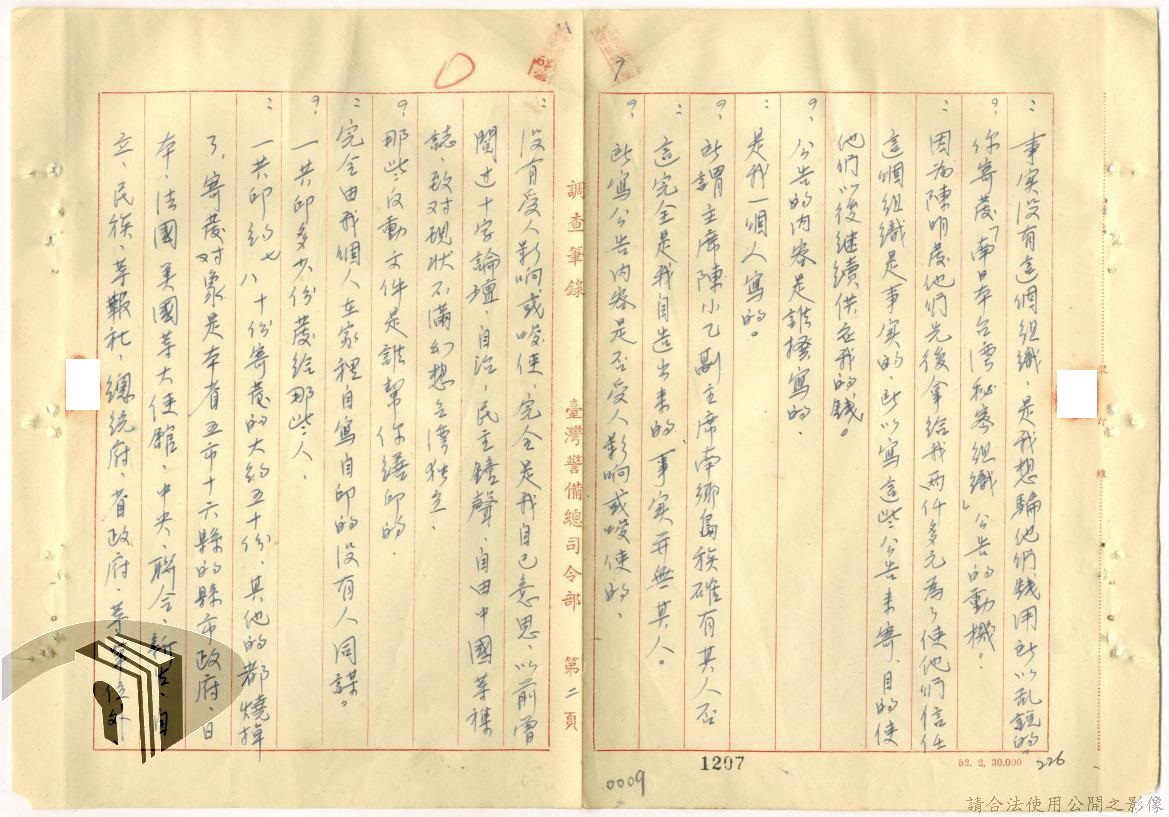 ：事实没有這個組織、是我想騙他們錢用所以亂說的。
？你寄發「南日本台湾秘密組織」公告的動機。
：因為陳明發他們先後拿給我两仟多元為了使他們信任
這個組織是事实的、所以寫這些公告来寄、目的使
他們以後继續供应我的錢。
？公告的内容是誰撰寫的、
：是我一個人寫的。
？所謂主席陳小乙副主席南鄉島族確有其人否
：這完全是我自造出来的、事实并無其人。
？所寫公告内容是否受人影响或唆使的、
：没有受人影响或唆使、完全是我自己意思、以前曾
閱过十字論壇、自治、民主鐘聲、自由中國等雜
誌、致对現状不滿幻想台湾独立、
？那些反動文件是誰幫你繕印的、
：完全由我個人在家裡自寫自印的没有人同謀。
？一共印多少份發給那些人、
：一共印約七八十份寄發的大約五十份、其他的都燒掉
了、寄發对象是本省五市十六縣的縣市政府、日
本、法國美國等大使館、中央、聯合、新生、自
立、民族、等報社、總統府、省政府、等單位
調查筆錄
臺灣警備總司令部
第二頁
裝
訂
線
1207
0009
52. 2. 30.000
226
請合法使用公開之影像